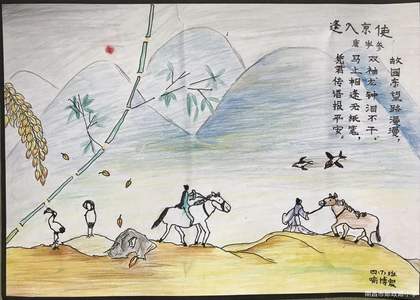 逢入京使
唐 岑参
故园东望路漫漫，
双袖龙钟泪不干。
马上相逢无纸笔，
凭君传语报平安。